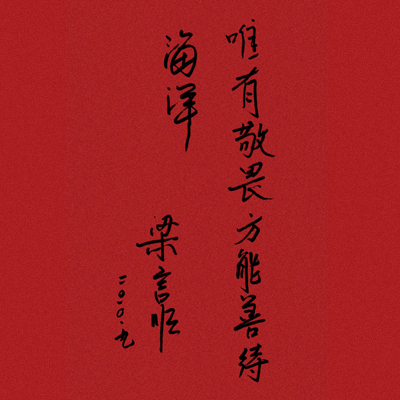 唯有敬畏方能善待
海洋
梁言顺
二〇二〇.九